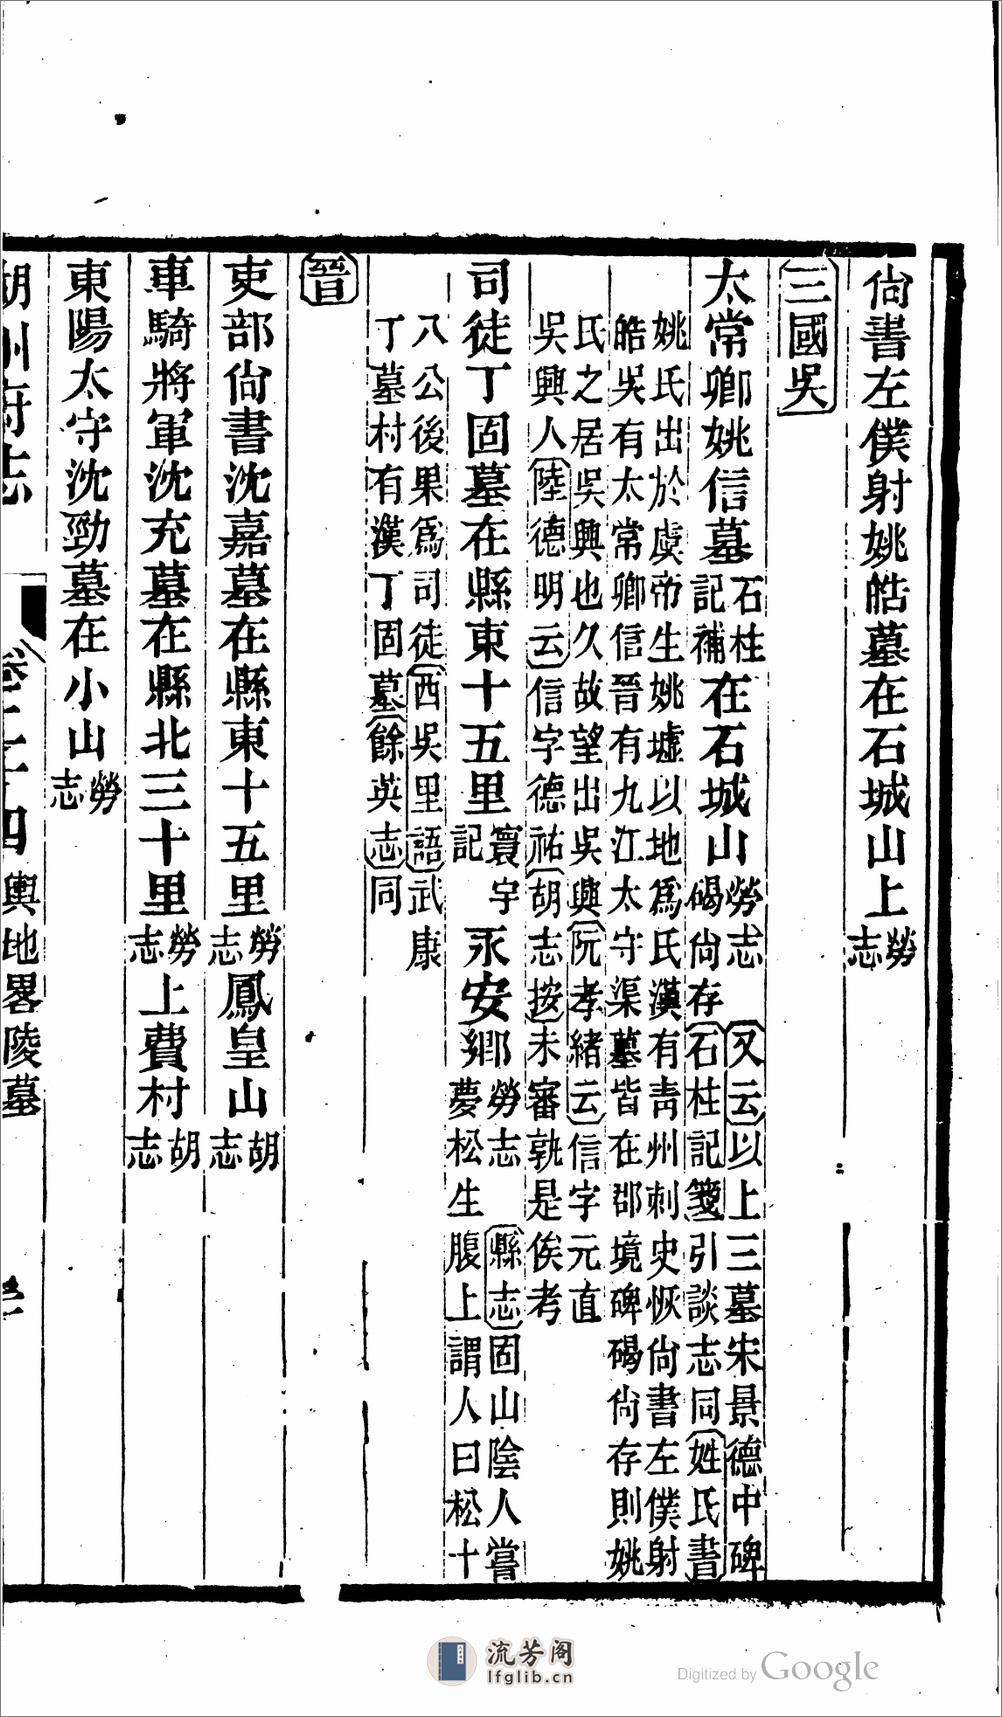 尙書左僕射姚皓墓在石城山上勞志
三國吳
太常卿姚信墓石柱記補在石城山勞志碣尙存又云以上三墓宋景德中碑石柱記箋引談志同姓氏書
姚氏出於虞帝生姚墟以地爲氏漢有靑州刺史恢尙書左僕射
皓吳有太常卿信晉有九江太守渠墓皆在郡境碑碣尙存則姚
氏之居吳興也久故望出吳興阮孝緒云信字元直
吳興人陸德明云信字德祐胡志按未審孰是俟考
司徒丁固墓在縣東十五里寰宇記永安鄉勞志縣志固山陰人嘗夢松生腹上謂人曰松十
八公後果爲司徒西吳里語武康
丁墓村有漢丁固墓餘英志同
晉
吏部尙書沈嘉墓在縣東十五里勞志鳳皇山胡志
車騎將軍沈充墓在縣北三十里勞志上費村胡志
東陽太守沈勁墓在小山勞志
湖州府志 卷二十四 輿地畧陵墓
流芳阁
lfglib.cn
Digitized by Google